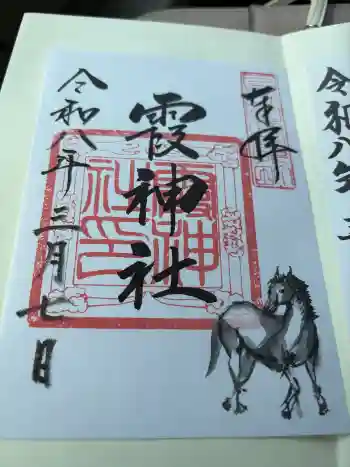 奉拝
霞神社
霞神社印
令和八年三月七日
令和八年 三